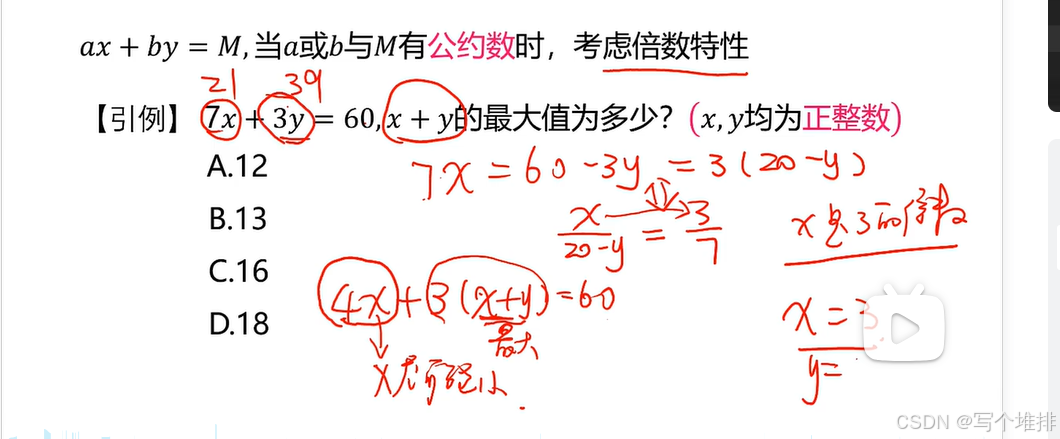 ax + by = M, 当a或b与M有公约数时，考虑倍数特性
21 39
【引例】7x + 3y = 60, x + y的最大值为多少？(x, y均为正整数)
A.12
7x = 60 - 3y = 3(20 - y)
B.13
x/(20-y) = 3/7
x是3的倍数
C.16
4x + 3(x+y) = 60
最大
D.18
x = 3
x尽可能小.
y =
CSDN @写个堆排